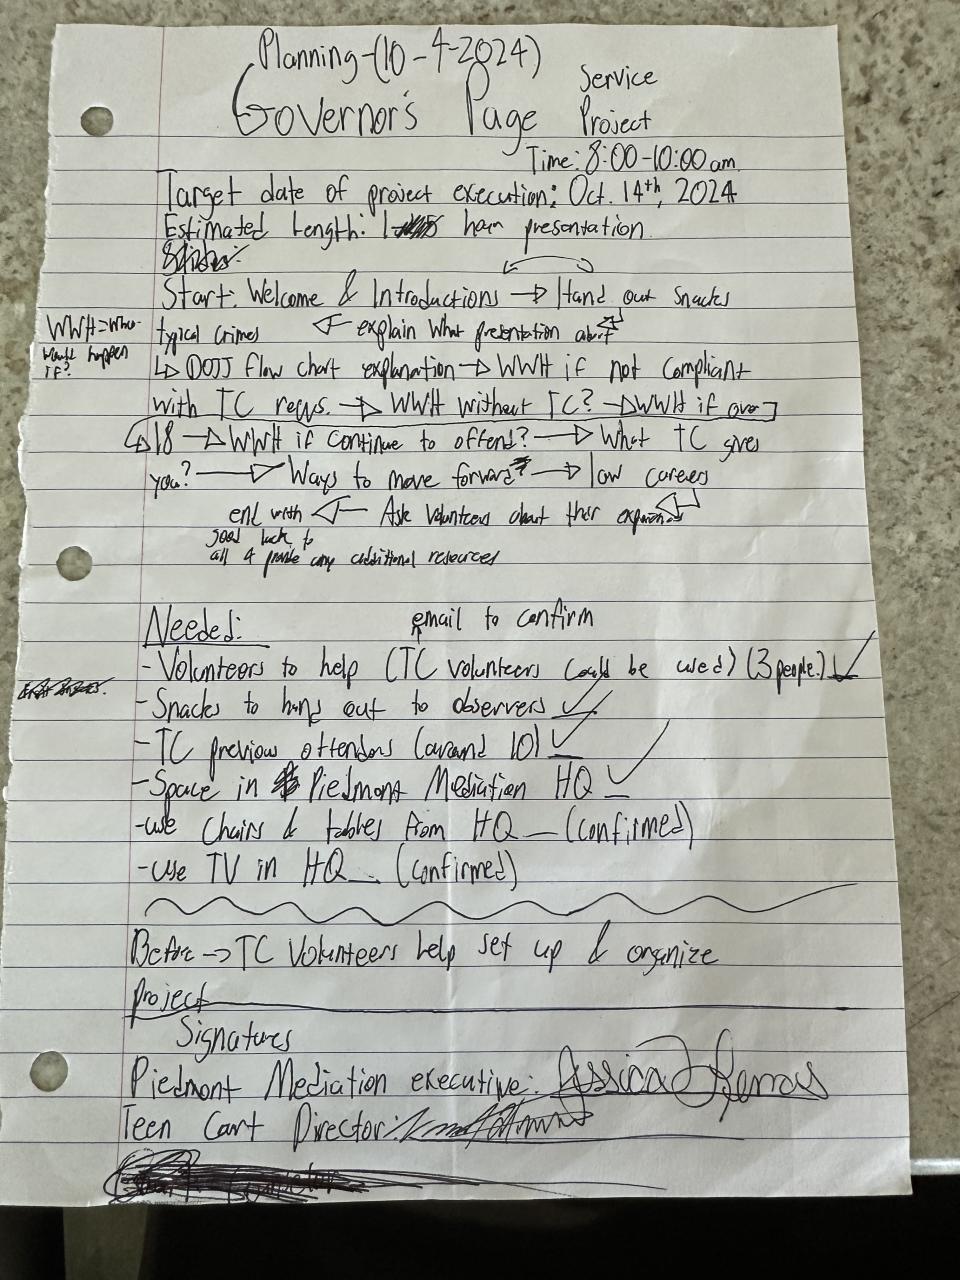 Planning-(10-4-2024)
Governor's Page Service Project
Time: 8:00-10:00 am
Target date of project execution: Oct. 14th, 2024
Estimated Length: 1 hour presentation
Start: Welcome & Introductions → Hand out snacks
typical crimes ← explain what presentation about
WWH = What would happen if?
↳ DOJJ flow chart explanation → WWH if not compliant
with TC reqs. → WWH without TC? → WWH if over
18 → WWH if continue to offend? → What TC gives
you? → Ways to move forward → law careers
end with ← Ask volunteers about their
good luck to
all & provide any additional resources
Needed: email to confirm
- Volunteers to help (TC volunteers could be used) (3 people) ✓
- Snacks to hand out to observers ✓
- TC previous offendors (around 10) ✓
- Space in Piedmont Mediation HQ ✓
- use chairs & tables from HQ (confirmed)
- use TV in HQ (confirmed)
Before → TC Volunteers help set up & organize
project
Signatures
Piedmont Mediation executive: Jessica
Teen Cart Director: